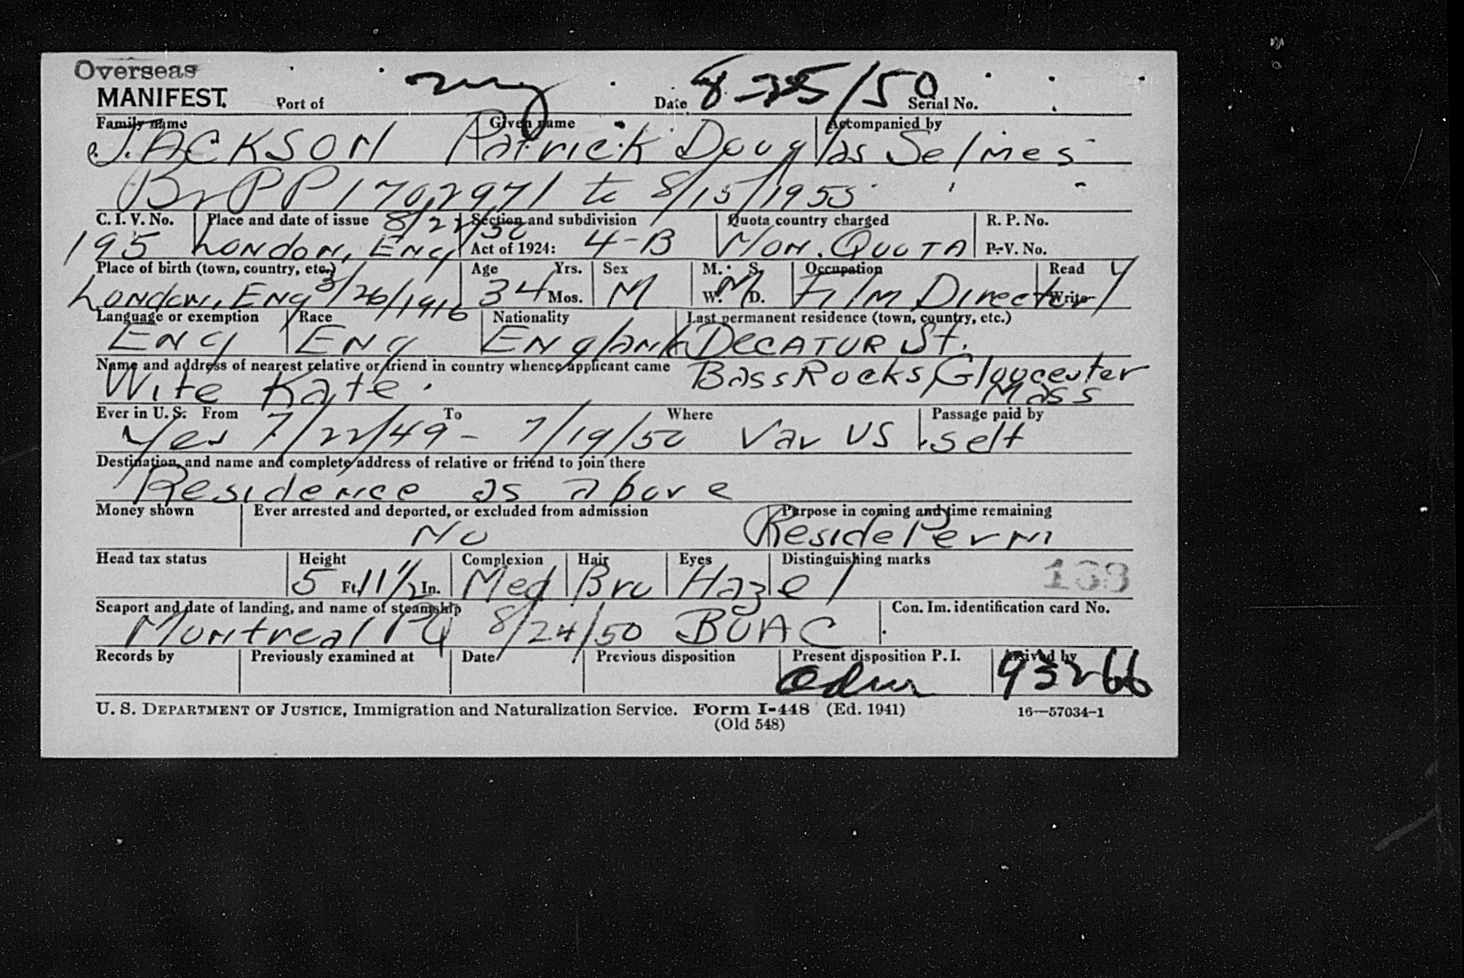 Overseas
MANIFEST. Port of Date 8-25/50 Serial No.
Family name Given name Accompanied by
JACKSON Patrick Douglas Selmes
Br PP 1702971 to 8/15/1955
C. I. V. No. Place and date of issue 8/22/50 Section and subdivision Quota country charged R. P. No.
195 London, Eng Act of 1924: 4-B Non. Quota P. V. No.
Place of birth (town, country, etc.) Age Yrs. Sex M. S. Occupation Read Y
London, Eng 3/26/1916 34 Mos. M W. M D. Film Director Write
Language or exemption Race Nationality Last permanent residence (town, country, etc.)
Eng Eng England Decatur St.
Name and address of nearest relative or friend in country whence applicant came Bass Rocks, Gloucester
Wife Kate Mass
Ever in U. S. From To Where Passage paid by
Yes 7/22/49 - 7/19/50 Var US self
Destination, and name and complete address of relative or friend to join there
Residence as above
Money shown Ever arrested and deported, or excluded from admission Purpose in coming and time remaining
No Reside Perm
Head tax status Height Complexion Hair Eyes Distinguishing marks
5 Ft. 11 1/2 In. Med Bro Hazel
Seaport and date of landing, and name of steamship Con. Im. identification card No.
Montreal PQ 8/24/50 BOAC
Records by Previously examined at Date Previous disposition Present disposition P. I. Arrived by
93266
U. S. DEPARTMENT OF JUSTICE, Immigration and Naturalization Service. Form I-448 (Ed. 1941) 16—57034-1
(Old 548)